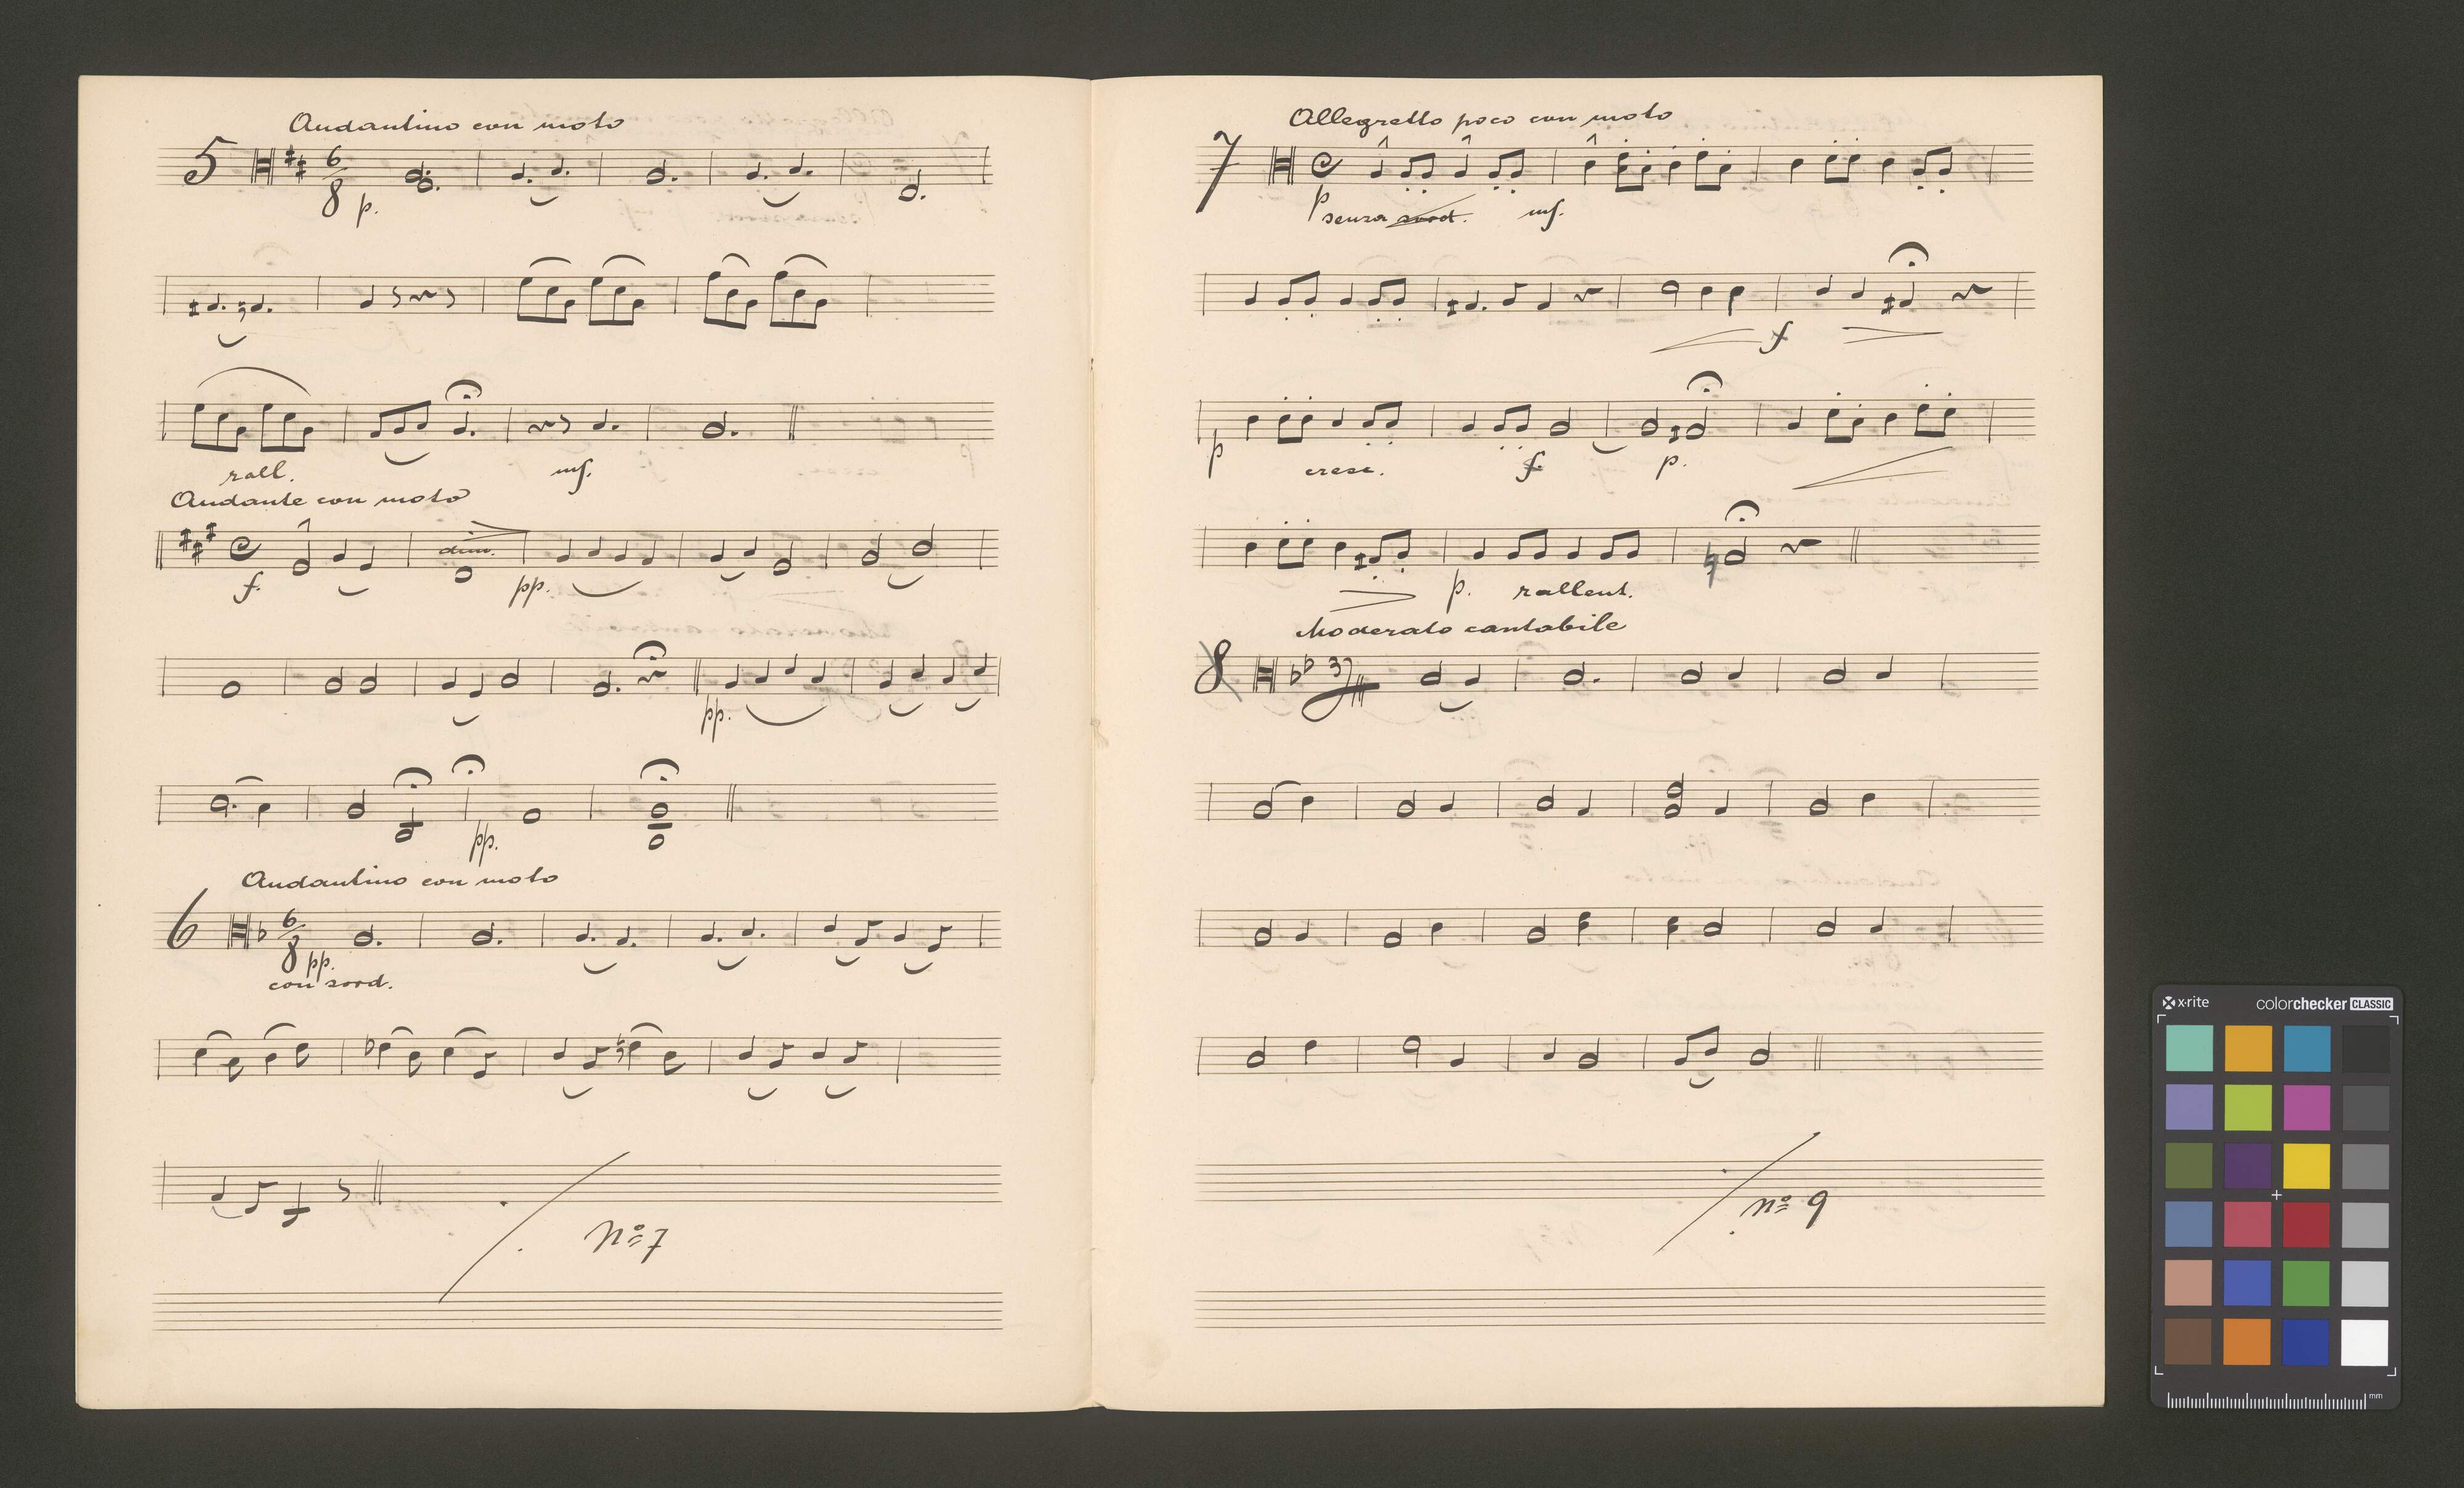 Andantino con moto
5 6/8 p.
rall. mf.
Andante con moto
f. dim. pp.
pp.
pp.
Andantino con moto
6 6/8 pp.
con sord.
No 7
Allegretto poco con moto
7 p senza sord. mf.
f
p cresc. f. p.
p. rallent.
Moderato cantabile
8 3/4
No 9
x-rite colorchecker CLASSIC
mm